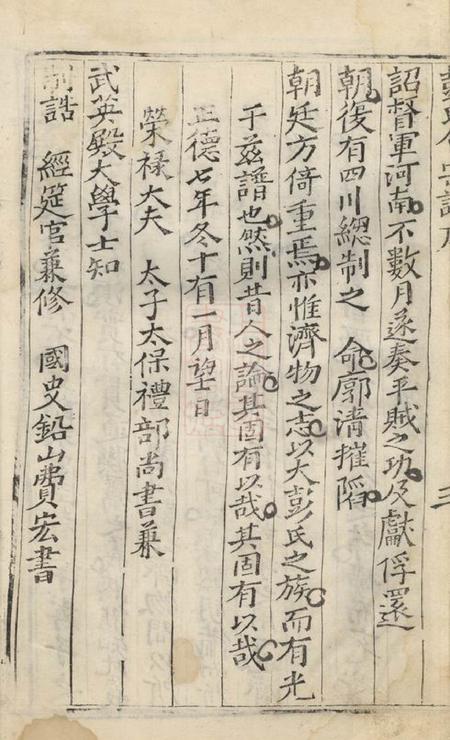 三
詔督軍河南不數月遂奏平賊之功及獻俘還
朝復有四川總制之 命廓清摧陷
朝廷方倚重焉亦惟濟物之志以大彭氏之族而有光
于兹譜也然則昔人之論其固有以哉其固有以哉
正德七年冬十有一月望日
榮禄大夫 太子太保禮部尚書兼
武英殿大學士知
制誥 經筵官兼修 國史鉛山費宏書